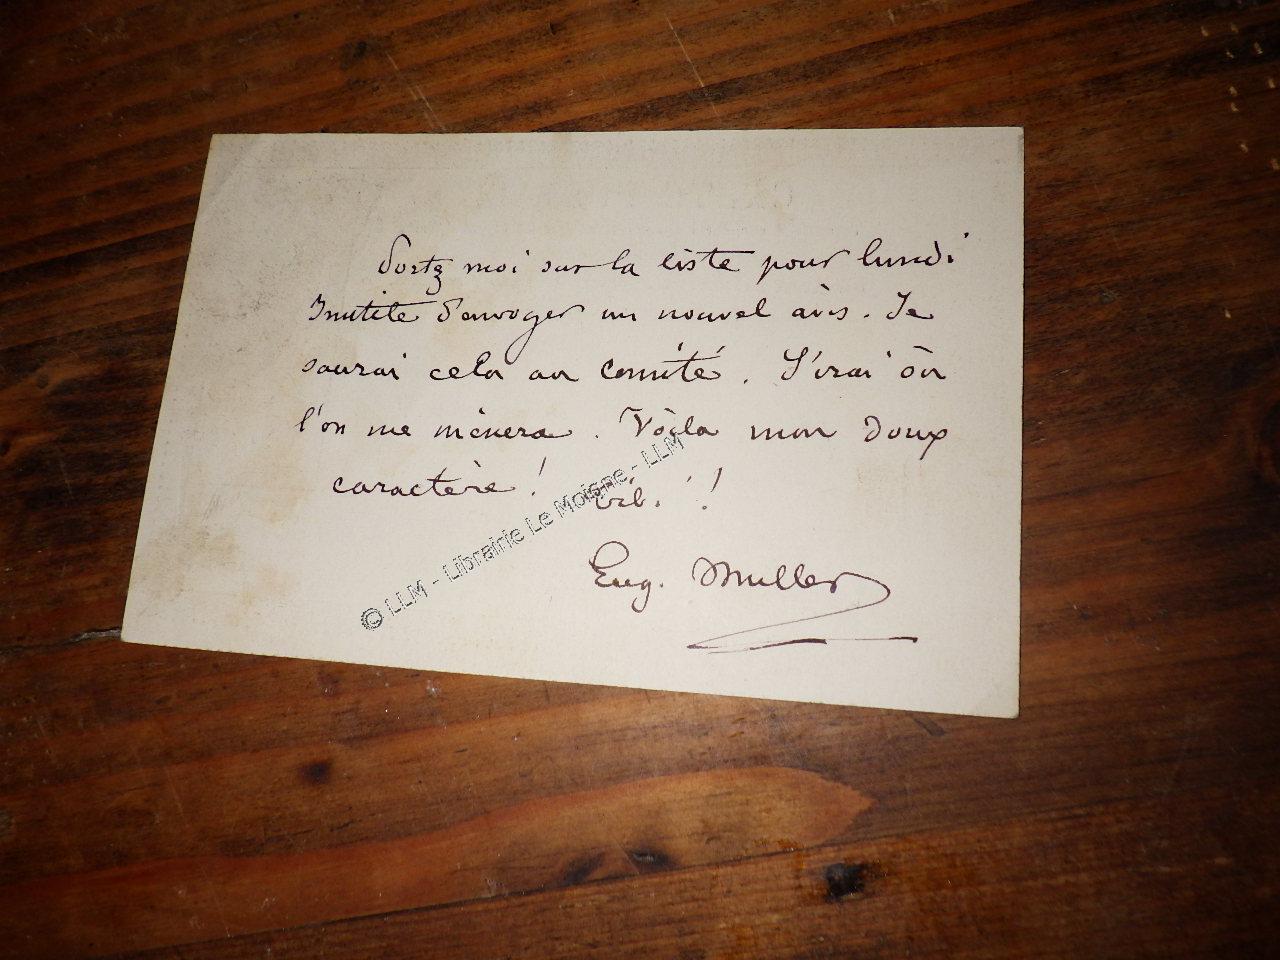 Portez moi sur la liste pour lundi
Inutile d'envoyer un nouvel avis. Je
saurai cela au comité. J'irai où
l'on me mènera. Voilà mon doux
caractère!
!
Eug. Muller
© LLM - Librairie Le Moigne - LLM